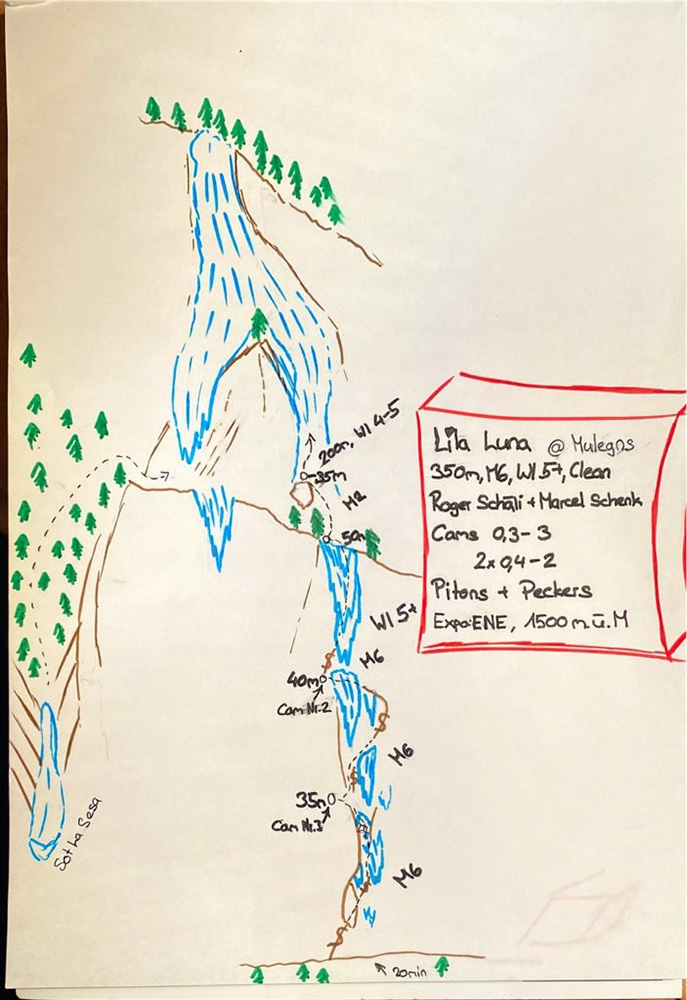 200m, WI 4-5
35m
M2
50m
WI 5+
M6
40m
Cam Nr.2
M6
35m
Cam Nr.3
M6
20min
Sot La Sesa
Lila Luna @ Mulegns
350m, M6, WI 5+, Clean
Roger Schäli + Marcel Schenk
Cams 0,3-3
2x 0,4-2
Pitons + Peckers
Expo: ENE, 1500 m.ü.M